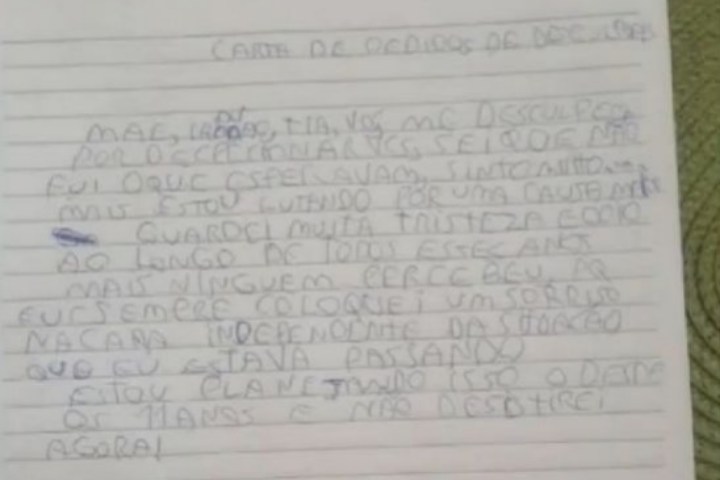 CARTA DE PEDIDOS DE DESCULPAS
MAE, TIA, VOS, ME DESCULPEM
POR DECEPCIONAR VCS, SEI QUE NÃO
FUI O QUE ESPERAVAM, SINTO MUITO
MAIS ESTOU LUTANDO POR UMA CAUSA
GUARDEI MUITA TRISTEZA E ODIO
AO LONGO DE TODOS ESTES ANOS
MAIS NINGUEM PERCEBEU, PQ
EU SEMPRE COLOQUEI UM SORRISO
NA CARA INDEPENDENTE DA SITUAÇÃO
QUE EU ESTAVA PASSANDO
ESTOU PLANEJANDO ISSO DESDE
OS 11 ANOS E NÃO DESISTIREI
AGORA!